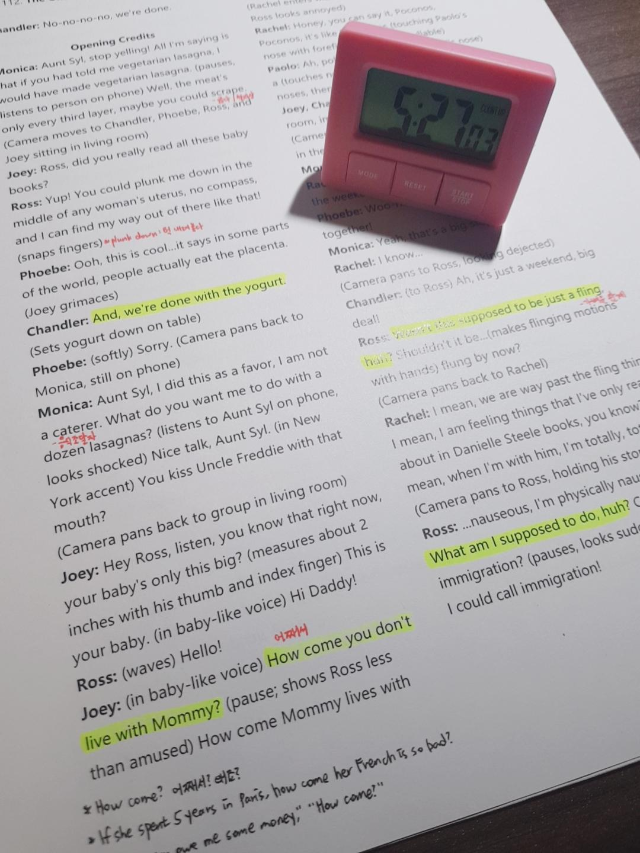 112. The
Chandler: No-no-no-no, we're done.
Opening Credits
Monica: Aunt Syl, stop yelling! All I'm saying is
that if you had told me vegetarian lasagna, I
would have made vegetarian lasagna. (pauses,
listens to person on phone) Well, the meat's
only every third layer, maybe you could scrape.
(Camera moves to Chandler, Phoebe, Ross, and
Joey sitting in living room)
Joey: Ross, did you really read all these baby
books?
Ross: Yup! You could plunk me down in the
middle of any woman's uterus, no compass,
and I can find my way out of there like that!
(snaps fingers)
Phoebe: Ooh, this is cool...it says in some parts
of the world, people actually eat the placenta.
(Joey grimaces)
Chandler: And, we're done with the yogurt.
(Sets yogurt down on table)
Phoebe: (softly) Sorry. (Camera pans back to
Monica, still on phone)
Monica: Aunt Syl, I did this as a favor, I am not
a caterer. What do you want me to do with a
dozen lasagnas? (listens to Aunt Syl on phone,
looks shocked) Nice talk, Aunt Syl. (in New
York accent) You kiss Uncle Freddie with that
mouth?
(Camera pans back to group in living room)
Joey: Hey Ross, listen, you know that right now,
your baby's only this big? (measures about 2
inches with his thumb and index finger) This is
your baby. (in baby-like voice) Hi Daddy!
Ross: (waves) Hello!
어째서
Joey: (in baby-like voice) How come you don't
live with Mommy? (pause; shows Ross less
than amused) How come Mommy lives with
* How come? 어째서! 왜?
* If she spent 5 years in Paris, how come her French is so bad?
owe me some money," "How come?"
Ross looks annoyed)
Rachel: Honey, you can say it, Poconos,
Poconos, it's like (touching Paolo's
nose with
Paolo: Ah,
a (touches
noses,
Joey,
room,
in the
5:27 03
MODE
RESET
START
STOP
the
Phoebe:
together!
Monica: Yeah, that's a big
Rachel: I know...
(Camera pans to Ross, looking dejected)
Chandler: (to Ross) Ah, it's just a weekend, big
deal!
Ross: supposed to be just a fling,
huh? Shouldn't it be...(makes flinging motions
with hands) flung by now?
(Camera pans back to Rachel)
Rachel: I mean, we are way past the fling
I mean, I am feeling things that I've only
about in Danielle Steele books, you know?
mean, when I'm with him, I'm totally,
(Camera pans to Ross, holding his
Ross: ...nauseous, I'm physically
What am I supposed to do, huh?
immigration? (pauses, looks
I could call immigration!